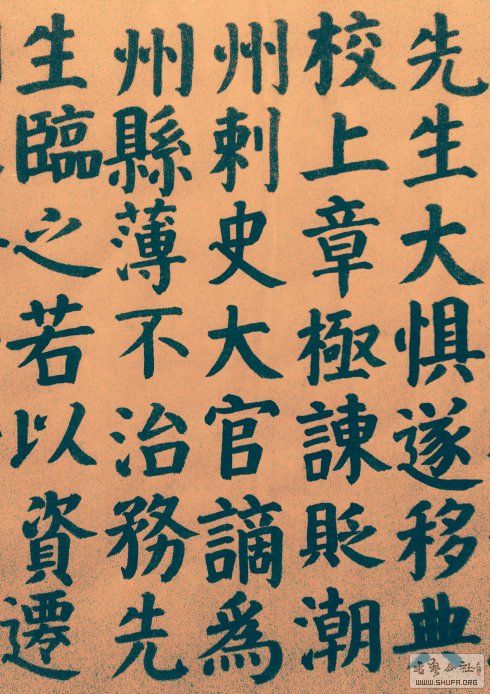 先生大惧遂移典
校上章極諫貶潮
州刺史大官謫為
州縣薄不治務先
生臨之若以資遷
古藝公社
WWW.SHUFA.ORG